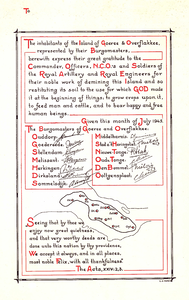 To
The inhabitants of the Island of Goeree & Overflakkee,
represented by their Burgomasters,
herewith express their great gratitude to the
Commander, Officers, N.C.O.s and Soldiers of
the Royal Artillery and Royal Engineers for
their noble work of demining this Island and so
restituting its soil to the use for which GOD made
it at the beginning of things, to grow crops upon it,
to feed men and cattle, and to bear happy and free
human beings.
Given this month of July 1945
The Burgomasters of Goeree and Overflakkee.
Ouddorp
Goedereede
Stellendam
Melissant
Herkingen
Dirksland
Sommelsdijk
Middelharnis
Stad a/h Haringvliet
Nieuwe-Tonge
Oude-Tonge
Den Bommel
Ooltgensplaat
Seeing that by thee we
enjoy now great quietness,
and that very worthy deeds are
done unto this nation by thy providence,
We accept it always, and in all places,
most noble Felix, with all thankfulness.
The Acts, XXIV: 2,3.